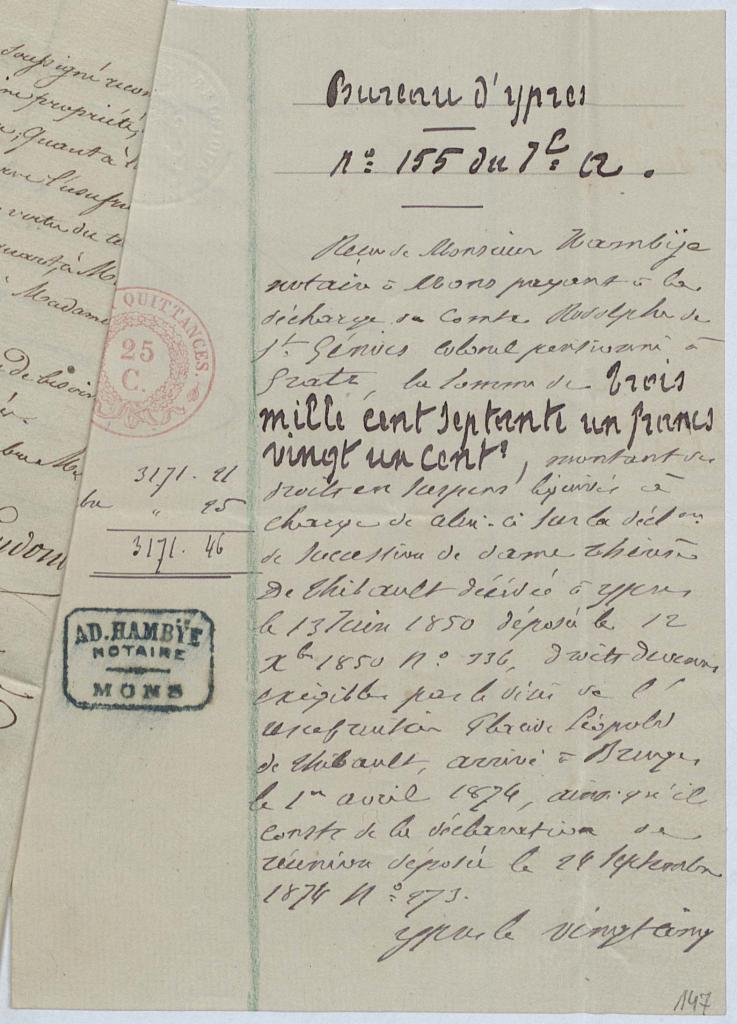 soussigné recon
ne propriété,
quant à l
l'usufru
vertu du te
quant à M.
à Madame
de besoin
QUITTANCES
25
C.
3171. 21
" 25
3171. 46
AD. HAMBŸE
NOTAIRE
MONS
Bureau d'Ypres
Nº 155 du 7e C2.
Reçu de Monsieur Hambÿe
notaire à Mons payant à la
décharge du Comte Rodolphe de
St Génois colonel pensionné à
Gratz, la somme de trois
mille cent septante un francs
vingt un cent, montant des
droits en suspens liquidés à
charge de celui-ci sur la décl.on
de succession de dame Thérèse
De Thibault décédée à Ypres
le 13 Juin 1850 déposée le 12
Xbre 1850 Nº 336, droits devenus
exigibles par le décès de l'
usufruitier Léopold
de Thibault, arrivé à Bruges
le 1er avril 1874, ainsi qu'il
conste de la déclaration de
réunion déposée le 24 Septembre
1874 Nº 973.
Ypres le vingt cinq
147